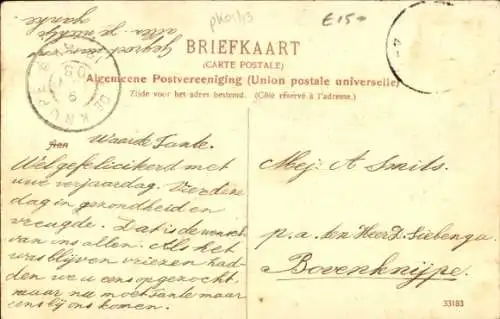 pk01/13
£15
Gegroet met
allen je nichtje
BRIEFKAART
(CARTE POSTALE)
Algemeene Postvereeniging (Union postale universelle)
Zijde voor het adres bestemd. (Côté réservé à l'adresse.)
DE KNIJPE
Aan
Waarde Tante.
Wel gefelicikerd met
uwe verjaardag. Vier deze
dag in gezondheid en
vreugde. Dat is de wensch
van ons allen. Als het
was blijven vriezen had-
den we u eens opgezocht,
maar nu moet Tante maar
eens bij ons komen.
Mej: A Smits.
p.a. den Heer D. Siebenga.
Bovenknijpe.
33183